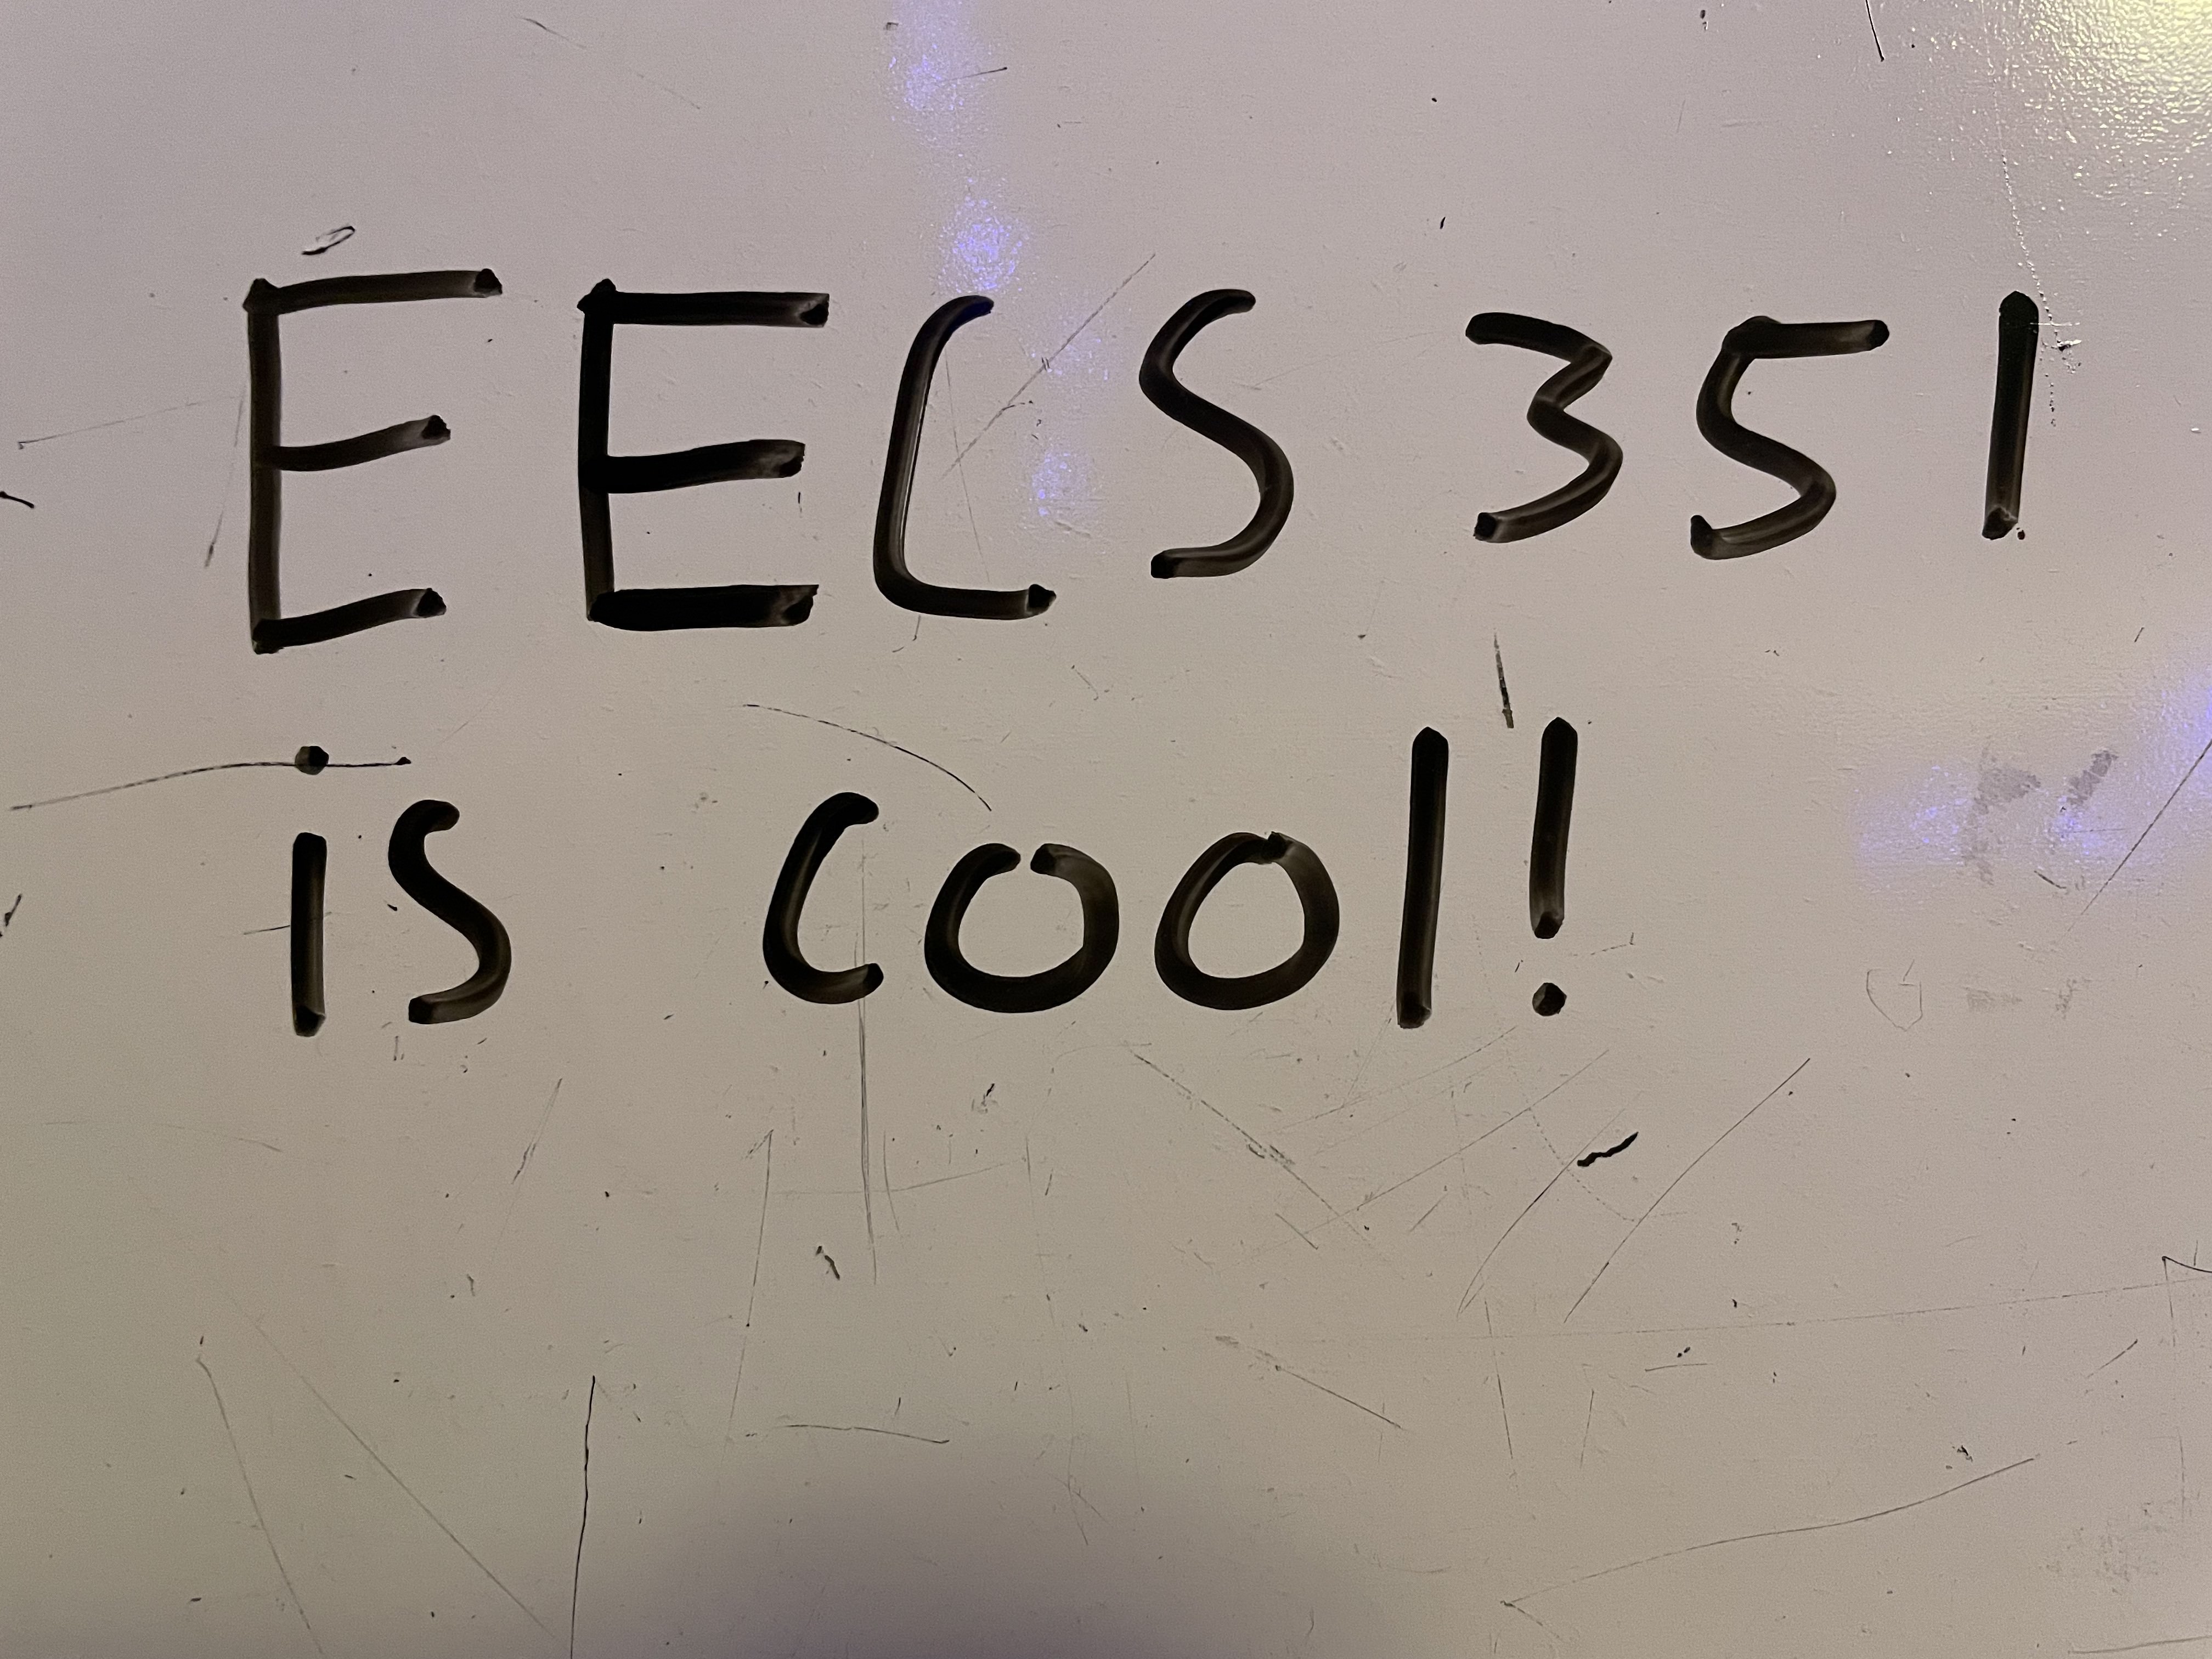 EECS 351
is cool!